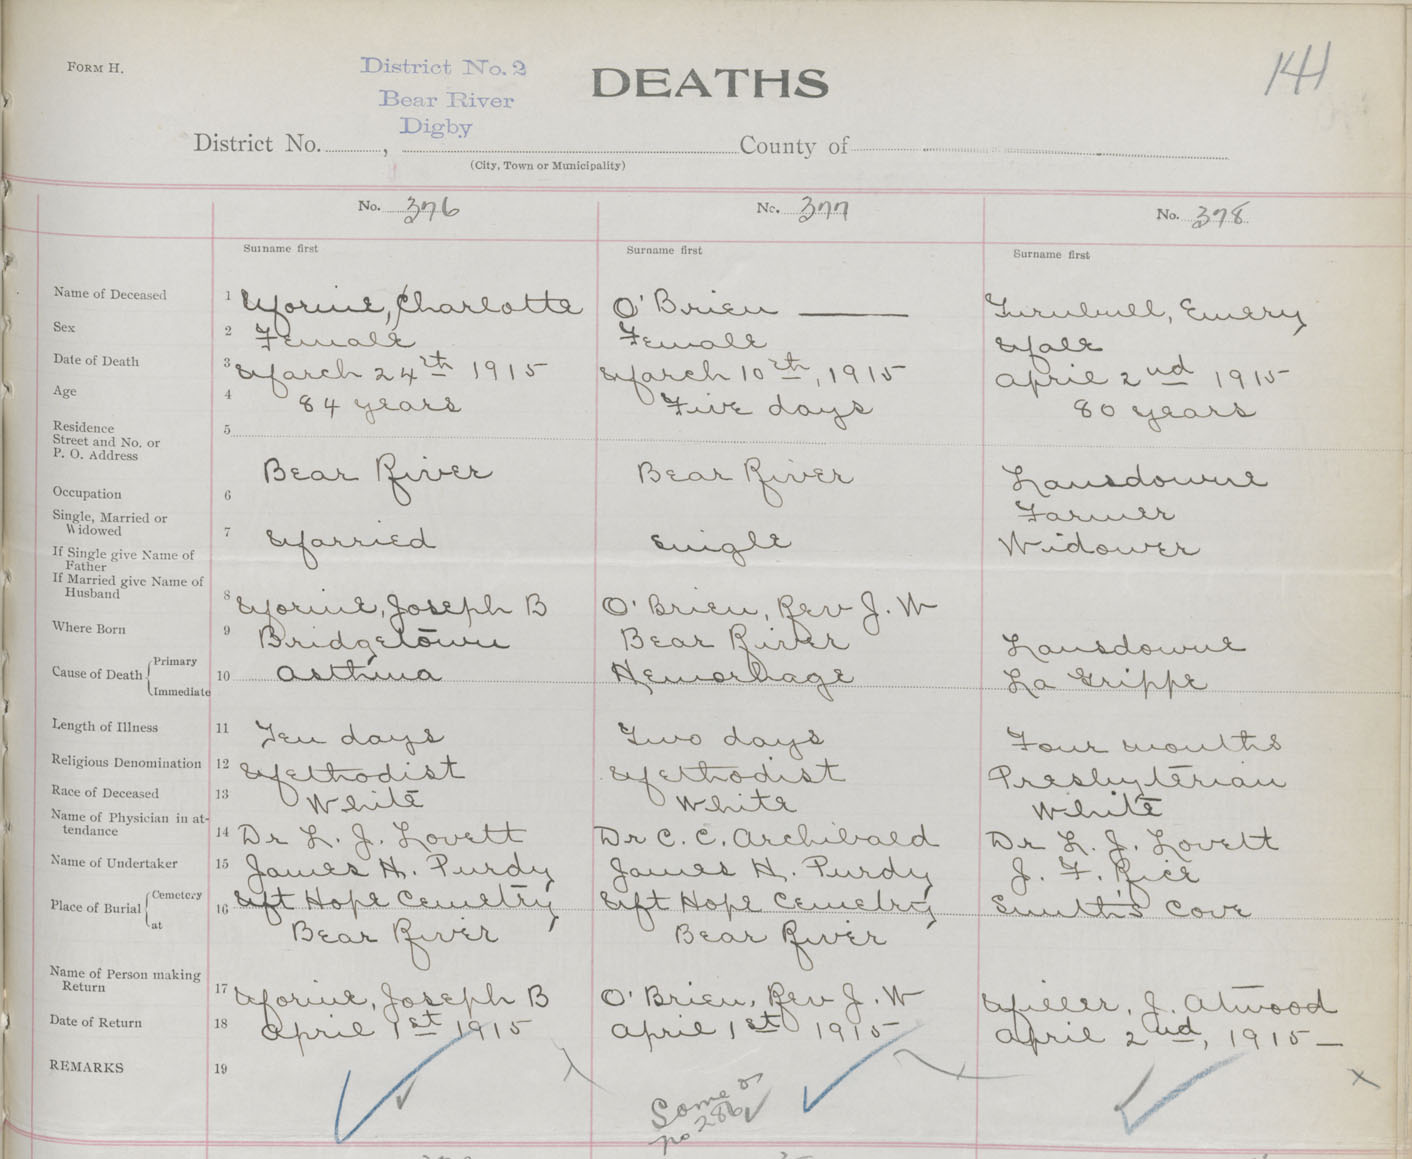 FORM H.
District No. 2
Bear River
Digby
DEATHS
141
District No. , County of
(City, Town or Municipality)
No. 376 No. 377 No. 378
Surname first Surname first Surname first
Name of Deceased 1 Morine, Charlotte O'Brien —— Turnbull, Emery
Sex 2 Female Female Male
Date of Death 3 March 24th 1915 March 10th, 1915 April 2nd 1915
Age 4 84 years Five days 80 years
Residence
Street and No. or
P. O. Address 5 Bear River Bear River Lansdowne
Occupation 6 Farmer
Single, Married or
Widowed 7 Married Single Widower
If Single give Name of
Father
If Married give Name of
Husband 8 Morine, Joseph B O'Brien, Rev J. W
Where Born 9 Bridgetown Bear River Lansdowne
Cause of Death Primary
Immediate 10 Asthma Hemorhage La Grippe
Length of Illness 11 Ten days Two days Four months
Religious Denomination 12 Methodist Methodist Presbyterian
Race of Deceased 13 White White White
Name of Physician in at-
tendance 14 Dr L. J. Lovett Dr C. C. Archibald Dr L. J. Lovett
Name of Undertaker 15 James H. Purdy James H. Purdy J. F. Rice
Place of Burial Cemetery
at 16 Mt Hope Cemetry, Mt Hope Cemetry, Smith's Cove
Bear River Bear River
Name of Person making
Return 17 Morine, Joseph B O'Brien, Rev J. W Miller, J. Atwood
Date of Return 18 April 1st 1915 April 1st 1915 April 2nd, 1915 —
REMARKS 19
Some as
no 286